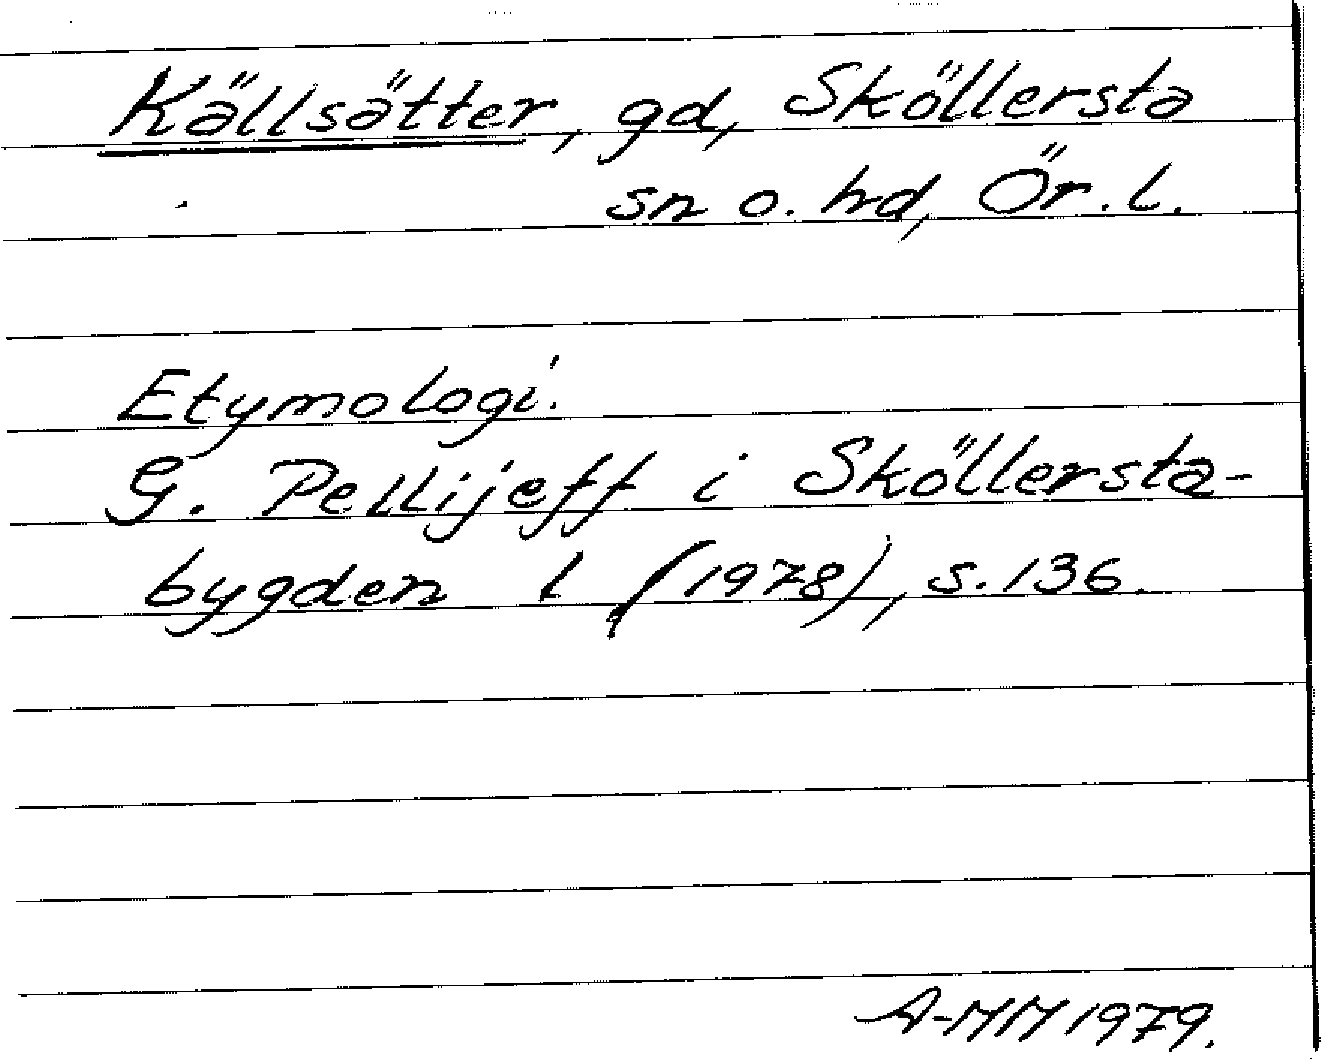 Källsätter, gd, Sköllersta
sn o. hd, Ör. l.
Etymologi.
G. Pellijeff i Sköllersta-
bygden 1 (1978), s. 136.
A-MM 1979.